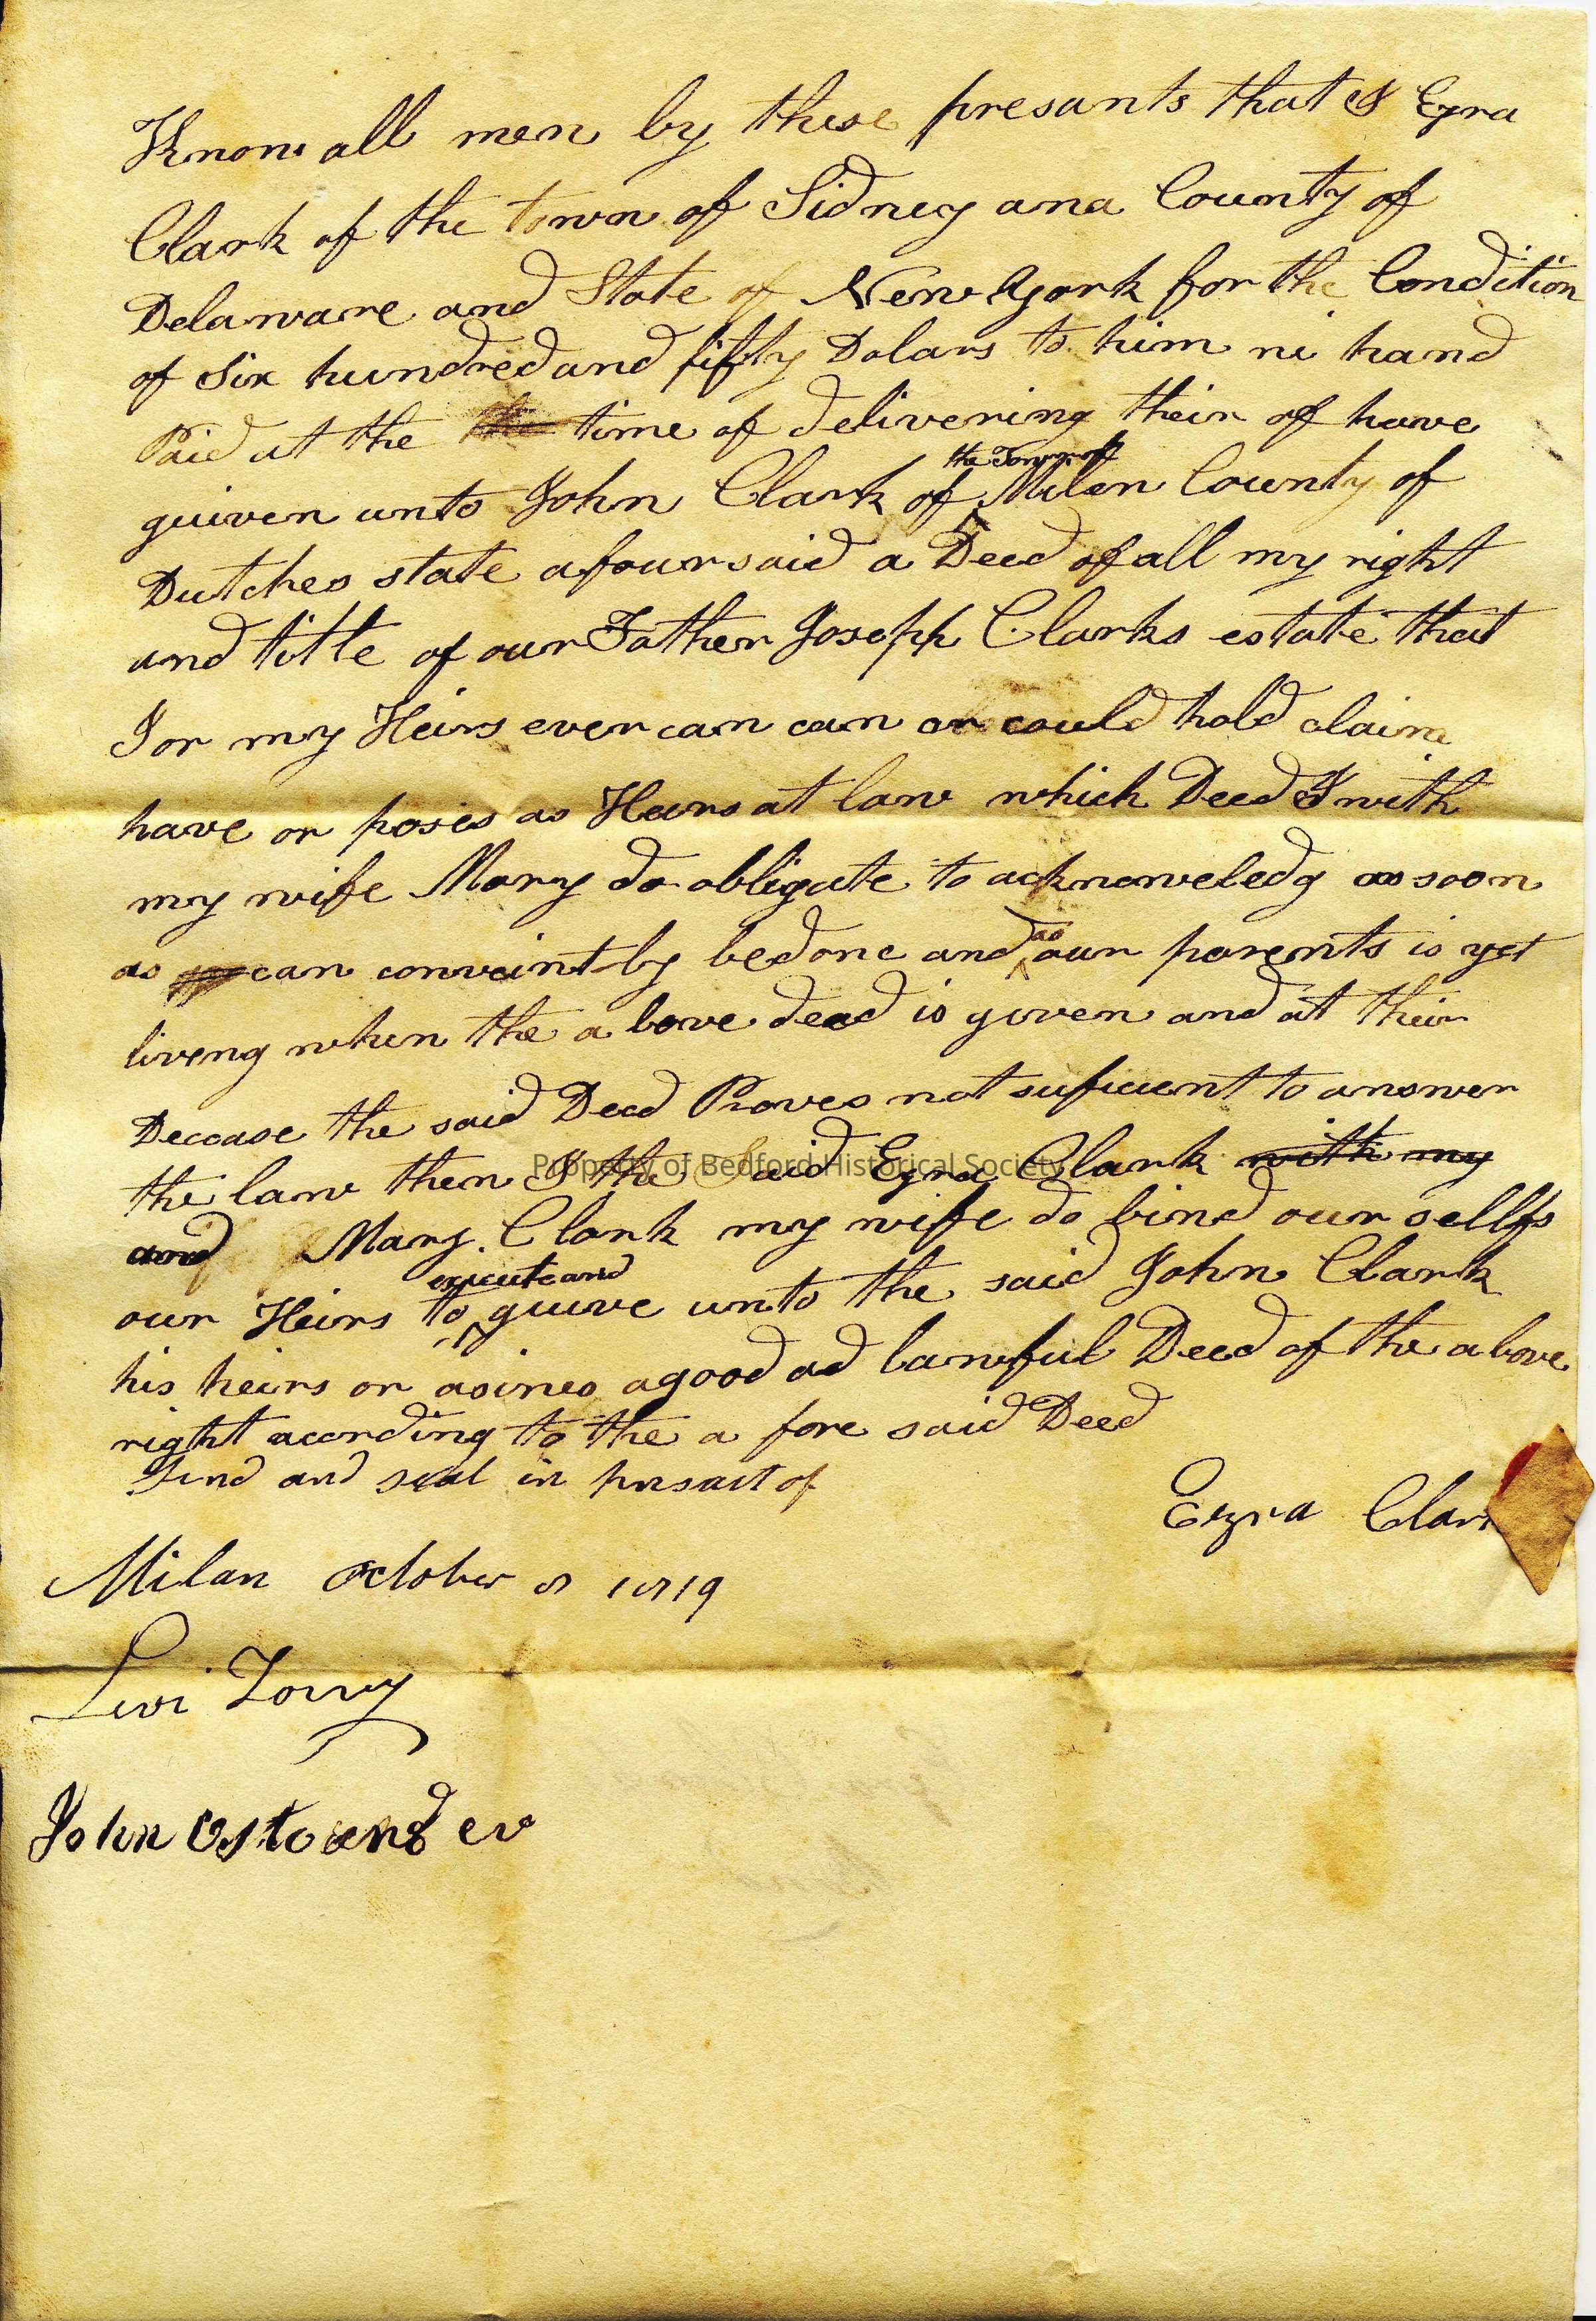 Know all men by these presants that I Ezra
Clark of the town of Sidney and County of
Delaware and State of New York for the Condition
of Six hundred and fifty Dolars to him in hand
Paid at the the time of delivering their off have
guiven unto John Clark of the Town of Milan County of
Dutches state afoursaid a Deed of all my right
and title of our Father Joseph Clarks estate that
I or my Heirs ever can can or could hold claim
have or poses as Heirs at law which Deed I with
my wife Mary do obligate to acknoweledg as soon
as can conveintly be done and as our parents is yet
living when the a bove deed is given and at their
Decease the said Deed Proves not sufucient to answer
the law then I the Said Ezra Clark with my
and Mary Clark my wife do bind our sellfs
our Heirs to execute and guive unto the said John Clark
his heirs or asines a good ad lawful Deed of the above
right acording to the a fore said Deed
and seal in prsast of
Ezra Clark
Milan October 8 1819
Levi Torry
John Ostrander
Property of Bedford Historical Society